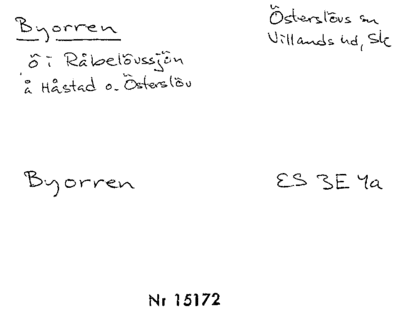 Byorren
Österslövs sn
Villands hd, Sk
ö i Råbelövssjön
å Håstad o. Österslöv
Byorren
ES 3E 4a
Nr 15172